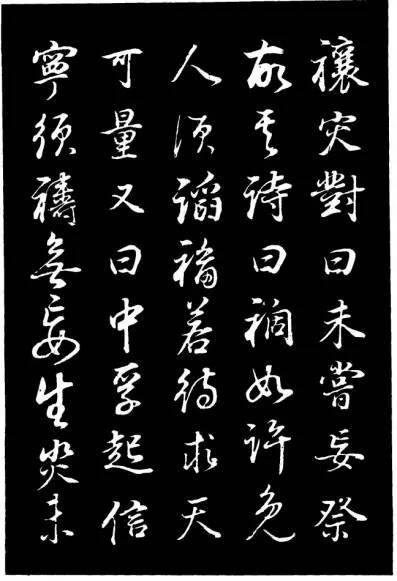 禳灾對曰未嘗妄祭
故其詩曰禍如許免
人須諂福若待求天
可量又曰中孚起信
寧須禱無妄生災未